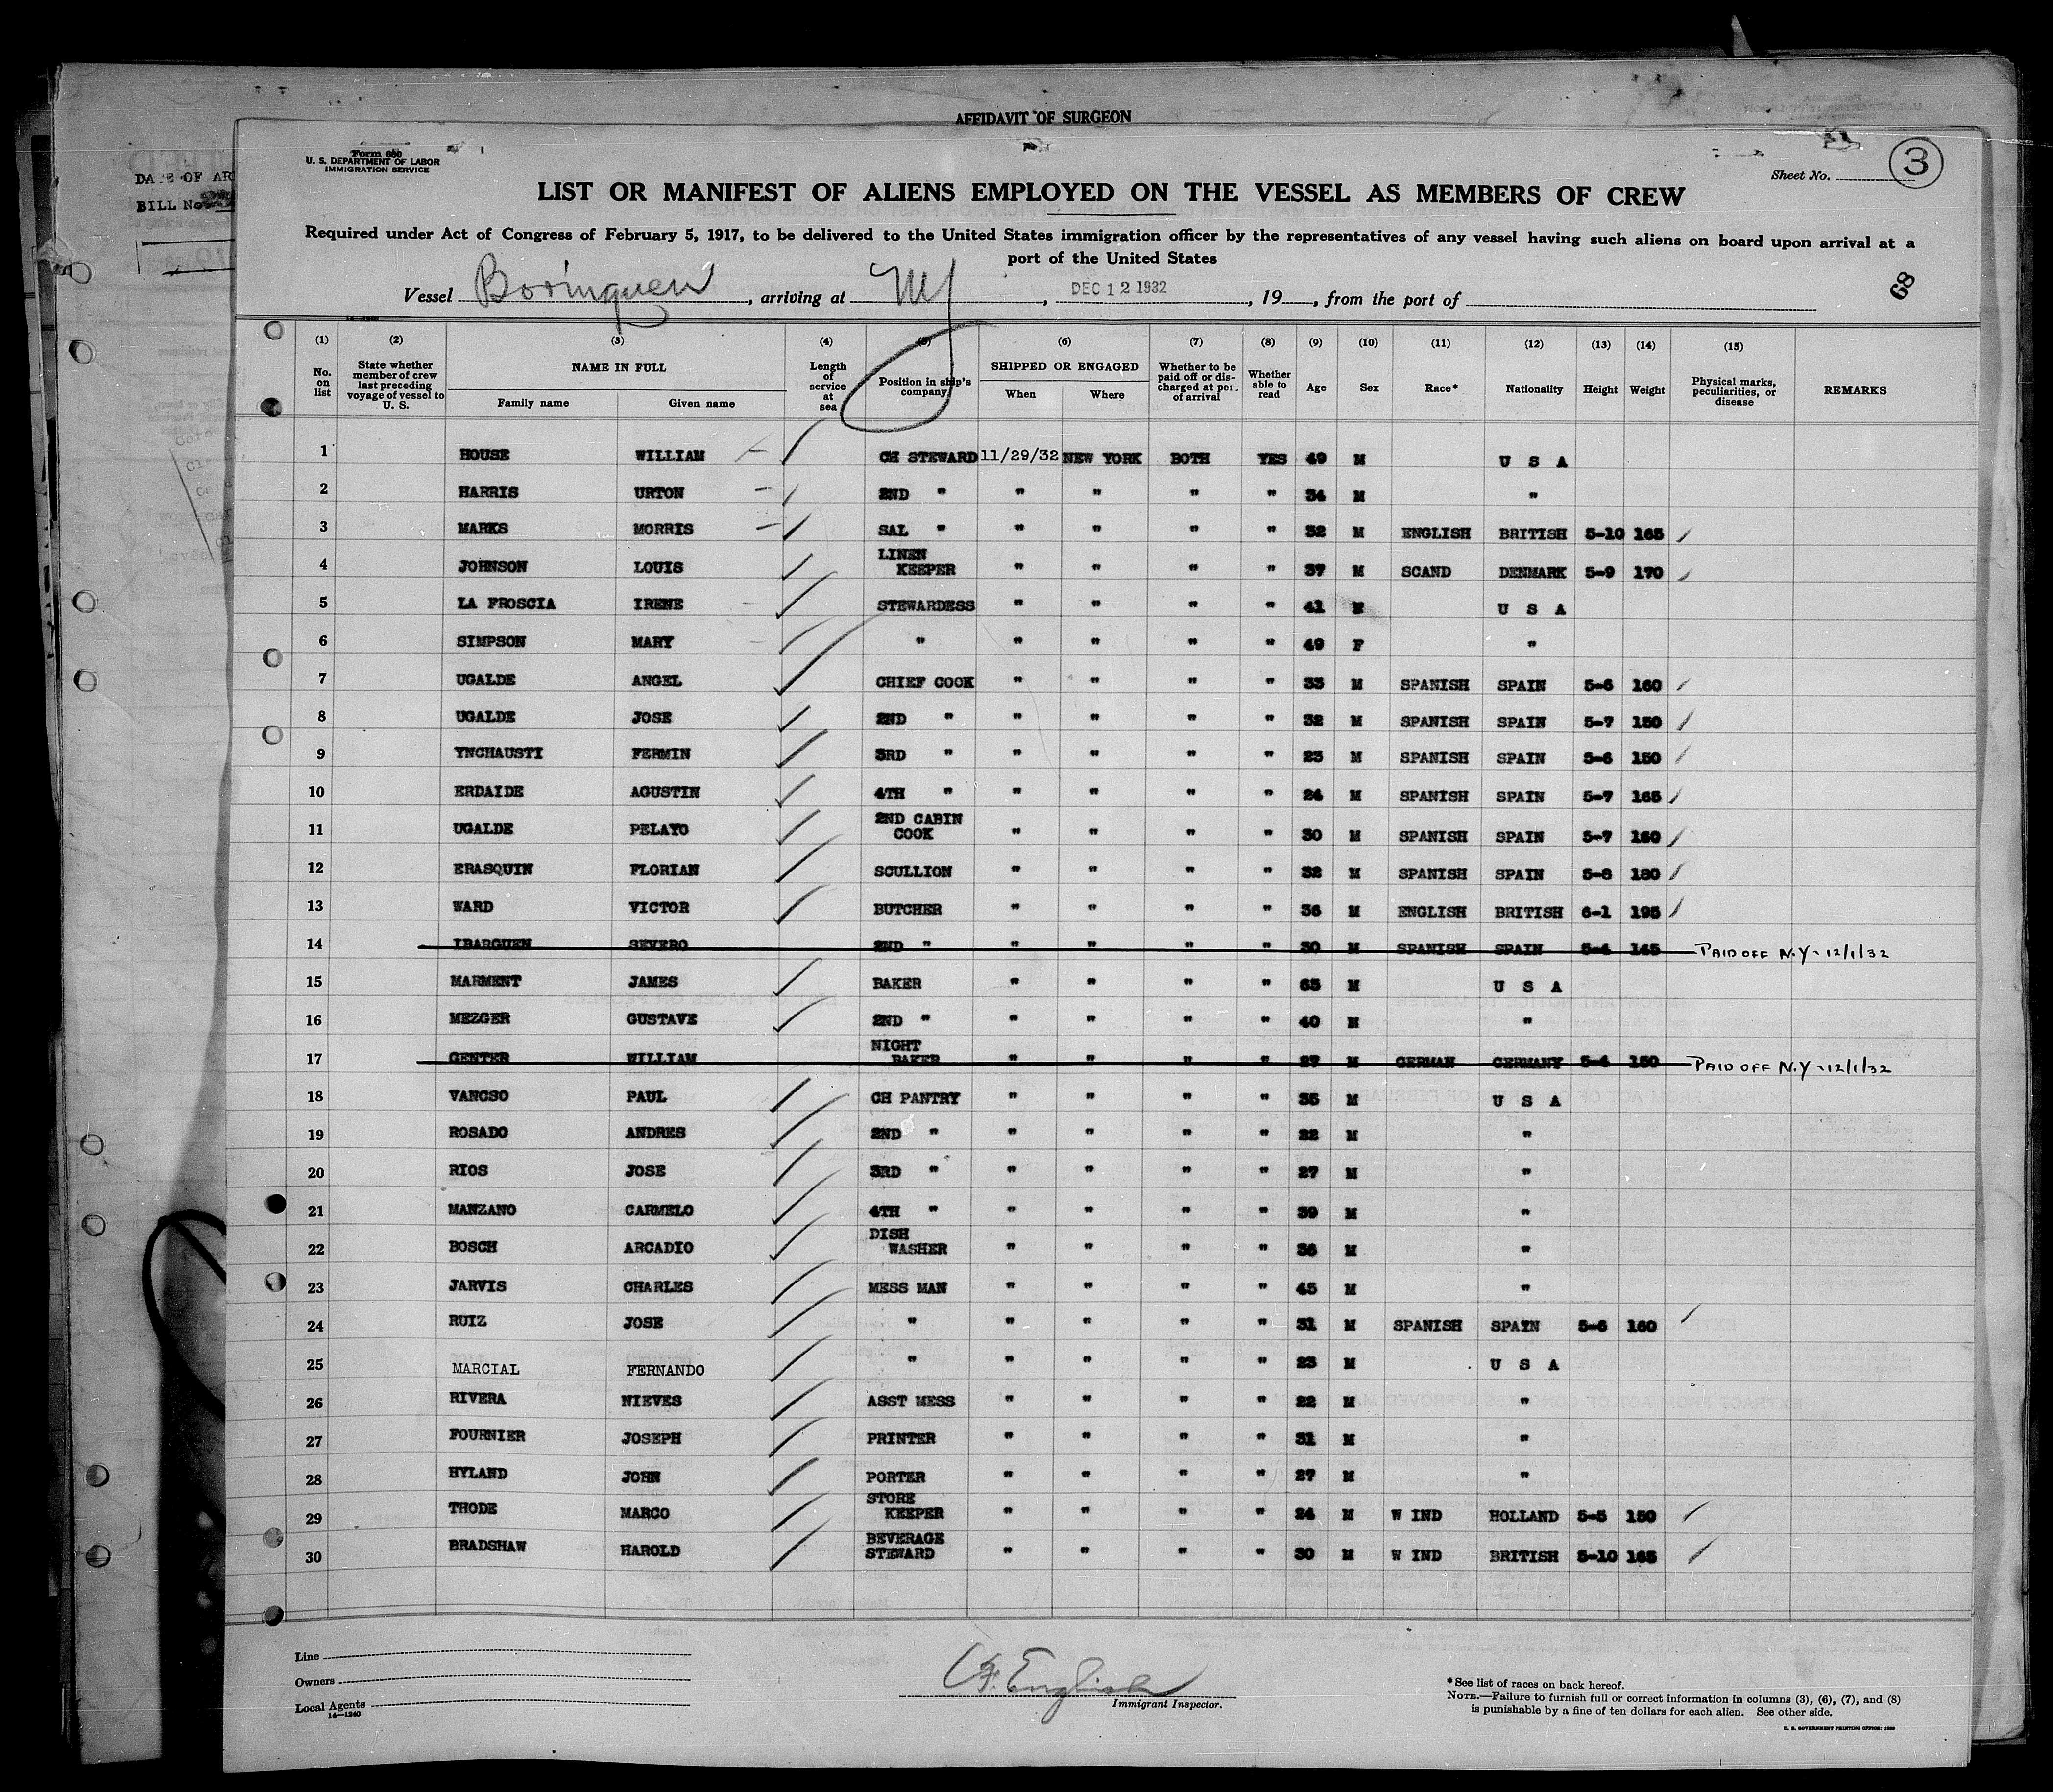 AFFIDAVIT OF SURGEON
Form 680
U. S. DEPARTMENT OF LABOR
IMMIGRATION SERVICE
DATE OF AR
BILL No.
Sheet No. 3
LIST OR MANIFEST OF ALIENS EMPLOYED ON THE VESSEL AS MEMBERS OF CREW
Required under Act of Congress of February 5, 1917, to be delivered to the United States immigration officer by the representatives of any vessel having such aliens on board upon arrival at a
port of the United States
68
Vessel Borinquen, arriving at NY, DEC 12 1932, 19, from the port of
(1) (2) (3) (4) (5) (6) (7) (8) (9) (10) (11) (12) (13) (14) (15)
No. on list State whether member of crew last preceding voyage of vessel to U. S. NAME IN FULL Family name Given name Length of service at sea Position in ship's company SHIPPED OR ENGAGED When Where Whether to be paid off or discharged at port of arrival Whether able to read Age Sex Race* Nationality Height Weight Physical marks, peculiarities, or disease REMARKS
1 HOUSE WILLIAM CH STEWARD 11/29/32 NEW YORK BOTH YES 49 M U S A
2 HARRIS URTON 2ND " " " " " 34 M "
3 MARKS MORRIS SAL " " " " " 32 M ENGLISH BRITISH 5-10 165
4 JOHNSON LOUIS LINEN KEEPER " " " " 37 M SCAND DENMARK 5-9 170
5 LA FROSCIA IRENE STEWARDESS " " " " 41 F U S A
6 SIMPSON MARY " " " " " 49 F "
7 UGALDE ANGEL CHIEF COOK " " " " 33 M SPANISH SPAIN 5-6 160
8 UGALDE JOSE 2ND " " " " " 32 M SPANISH SPAIN 5-7 150
9 YNCHAUSTI FERMIN 3RD " " " " " 23 M SPANISH SPAIN 5-6 150
10 ERDAIDE AGUSTIN 4TH " " " " " 24 M SPANISH SPAIN 5-7 165
11 UGALDE PELAYO 2ND CABIN COOK " " " " 30 M SPANISH SPAIN 5-7 160
12 ERASQUIN FLORIAN SCULLION " " " " 32 M SPANISH SPAIN 5-8 180
13 WARD VICTOR BUTCHER " " " " 36 M ENGLISH BRITISH 6-1 195
14 IBARGUEN SEVERO 2ND " " " " " 30 M SPANISH SPAIN 5-4 145 PAID OFF N.Y - 12/1/32
15 MARMENT JAMES BAKER " " " " 65 M U S A
16 MEZGER GUSTAVE 2ND " " " " " 40 M "
17 GENTER WILLIAM NIGHT BAKER " " " " 27 M GERMAN GERMANY 5-4 150 PAID OFF N.Y - 12/1/32
18 VANCSO PAUL CH PANTRY " " " " 35 M U S A
19 ROSADO ANDRES 2ND " " " " " 22 M "
20 RIOS JOSE 3RD " " " " " 27 M "
21 MANZANO CARMELO 4TH " " " " " 39 M "
22 BOSCH ARCADIO DISH WASHER " " " " 36 M "
23 JARVIS CHARLES MESS MAN " " " " 45 M "
24 RUIZ JOSE " " " " " 31 M SPANISH SPAIN 5-6 160
25 MARCIAL FERNANDO " " " " " 23 M U S A
26 RIVERA NIEVES ASST MESS " " " " 22 M "
27 FOURNIER JOSEPH PRINTER " " " " 31 M "
28 HYLAND JOHN PORTER " " " " 27 M "
29 THODE MARCO STORE KEEPER " " " " 24 M W IND HOLLAND 5-5 150
30 BRADSHAW HAROLD BEVERAGE STEWARD " " " " 30 M W IND BRITISH 5-10 165
Line
Owners
Local Agents
14—1240
English
Immigrant Inspector.
*See list of races on back hereof.
NOTE.—Failure to furnish full or correct information in columns (3), (6), (7), and (8)
is punishable by a fine of ten dollars for each alien. See other side.
U. S. GOVERNMENT PRINTING OFFICE: 1930